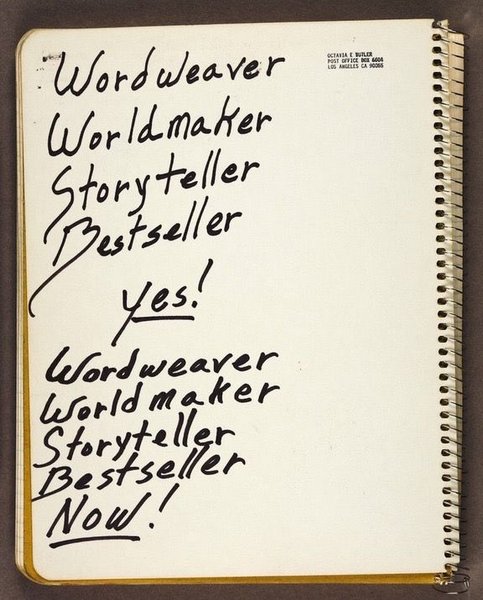 OCTAVIA E BUTLER
POST OFFICE BOX 6604
LOS ANGELES CA 90055
Wordweaver
Worldmaker
Storyteller
Bestseller
Yes!
Wordweaver
Worldmaker
Storyteller
Bestseller
Now!